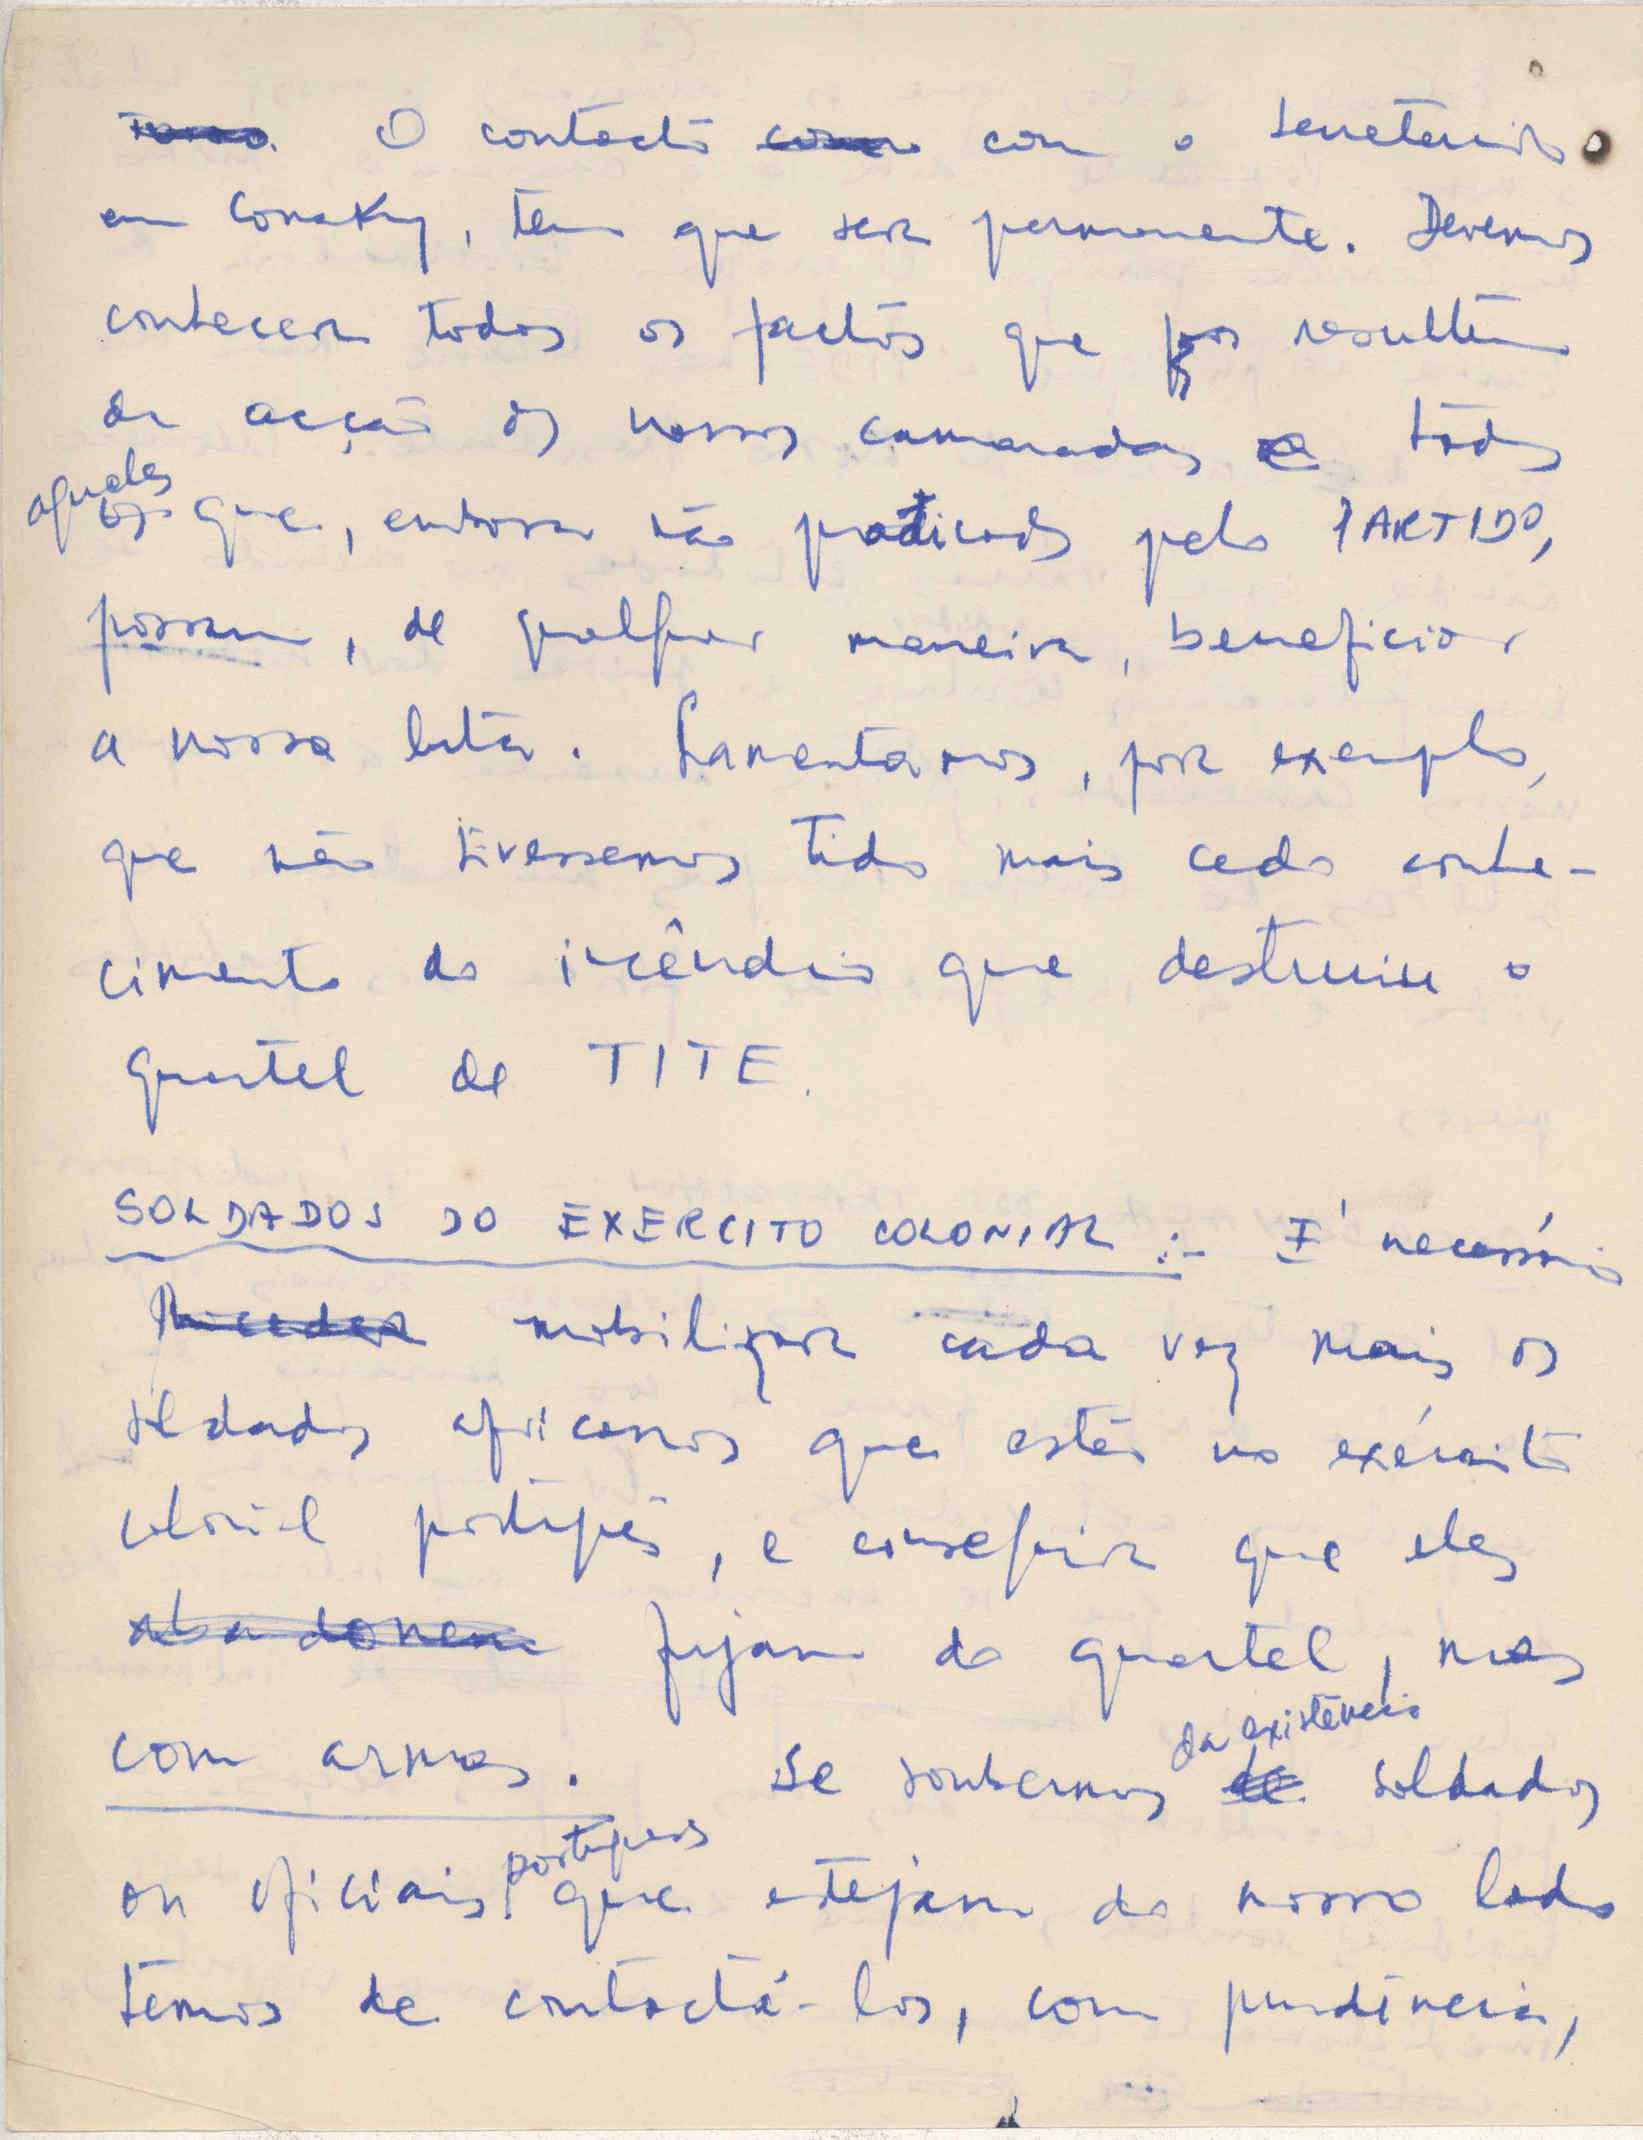 O contacto com o secretariado
em Conakry, tem que ser permanente. Devemos
conhecer todos os factos que resultem
da acção dos nossos camaradas e todos
aqueles que, embora não praticados pelo PARTIDO,
possam, de qualquer maneira, beneficiar
a nossa luta. Lamentamos, por exemplo,
que não tivessemos tido mais cedo conhe-
cimento do incêndio que destruiu o
quartel de TITE.
SOLDADOS DO EXERCITO COLONIAL :- É necessário
mobilizar cada vez mais os
soldados africanos que estão no exército
colonial português, e conseguir que eles
abandonem fujam do quartel, mas
com armas. Se soubermos da existência de soldados
ou oficiais portugueses que estejam do nosso lado
temos de contactá-los, com prudência,